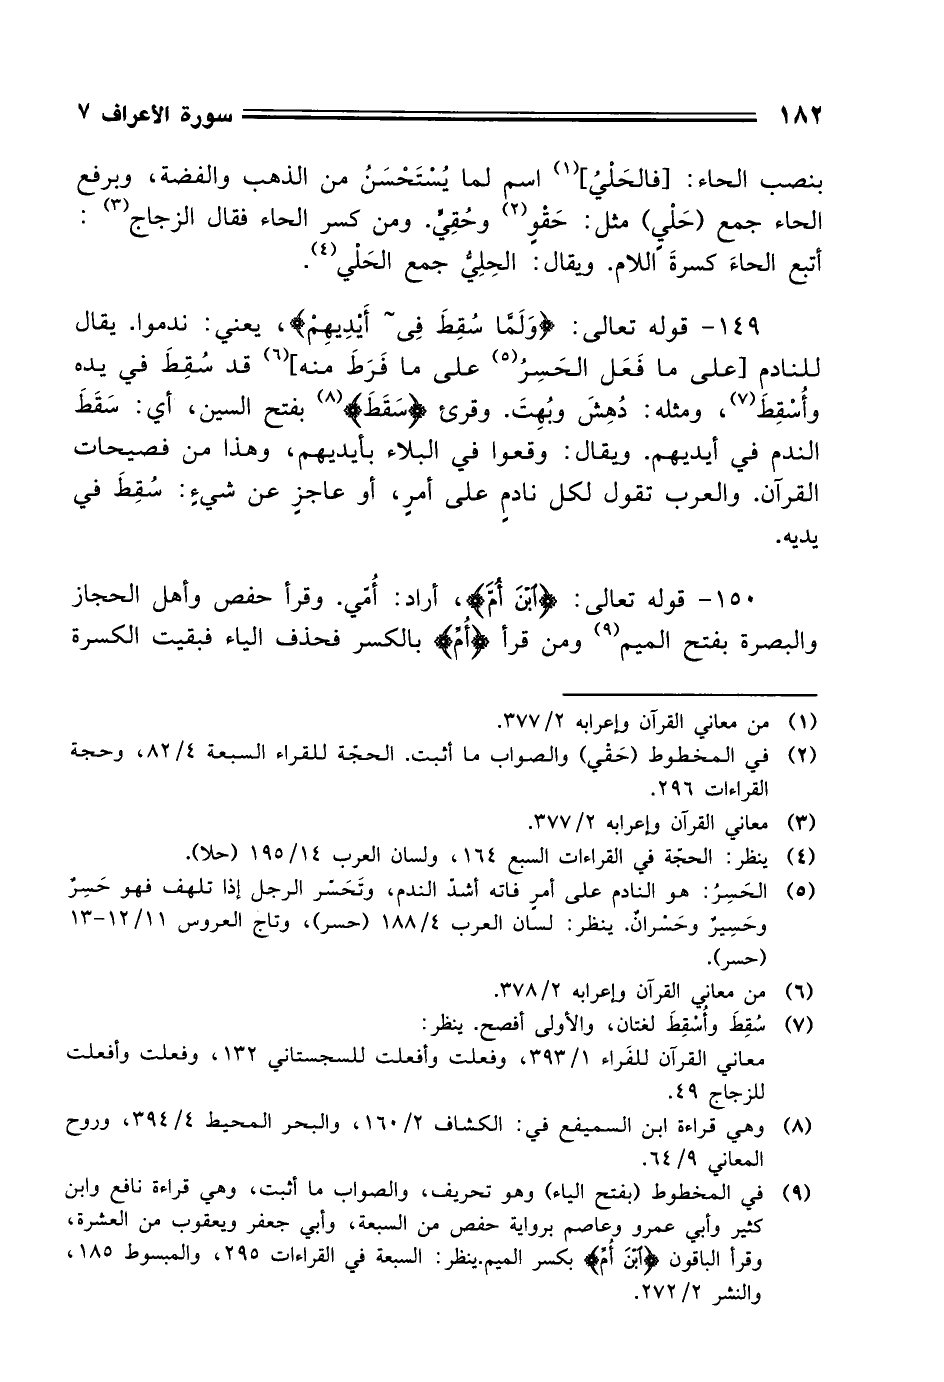 ١٨٢ سورة الأعراف ٧
بنصب الحاء: [فالحَلْيُ](١) اسم لما يُسْتَحْسَنُ من الذهب والفضة، وبرفع
الحاء جمع (حَلْيٍ) مثل: حَقْوٍ(٢) وحُقِيٍّ. ومن كسر الحاء فقال الزجاج(٣) :
أتبع الحاءَ كسرةَ اللام. ويقال: الحِلِيُّ جمع الحَلْي(٤).
١٤٩- قوله تعالى: ﴿وَلَمَّا سُقِطَ فِىٓ أَيْدِيهِمْ﴾، يعني: ندموا. يقال
للنادم [على ما فَعَل الحَسِرُ(٥) على ما فَرَطَ منه](٦) قد سُقِطَ في يده
وأُسْقِطَ(٧)، ومثله: دُهِشَ وبُهِتَ. وقرئ ﴿سَقَطَ﴾(٨) بفتح السين، أي: سَقَطَ
الندم في أيديهم. ويقال: وقعوا في البلاء بأيديهم، وهذا من فصيحات
القرآن. والعرب تقول لكل نادمٍ على أمرٍ، أو عاجزٍ عن شيءٍ: سُقِطَ في
يديه.
١٥٠- قوله تعالى: ﴿ٱبْنَ أُمَّ﴾، أراد: أُمّي. وقرأ حفص وأهل الحجاز
والبصرة بفتح الميم(٩) ومن قرأ ﴿أُمِّ﴾ بالكسر فحذف الياء فبقيت الكسرة
(١) من معاني القرآن وإعرابه ٣٧٧/٢.
(٢) في المخطوط (حَقْي) والصواب ما أثبت. الحجّة للقراء السبعة ٨٢/٤، وحجة
القراءات ٢٩٦.
(٣) معاني القرآن وإعرابه ٣٧٧/٢.
(٤) ينظر: الحجّة في القراءات السبع ١٦٤، ولسان العرب ١٩٥/١٤ (حلا).
(٥) الحَسِرُ: هو النادم على أمرٍ فاته أشدّ الندم، وتَحَسّر الرجل إذا تلهف فهو حَسِرٌ
وحَسِيرٌ وحَسْرانٌ. ينظر: لسان العرب ١٨٨/٤ (حسر)، وتاج العروس ١٢/١١-١٣
(حسر).
(٦) من معاني القرآن وإعرابه ٣٧٨/٢.
(٧) سُقِطَ وأُسْقِطَ لغتان، والأولى أفصح. ينظر:
معاني القرآن للفَراء ٣٩٣/١، وفعلت وأفعلت للسجستاني ١٣٢، وفعلت وأفعلت
للزجاج ٤٩.
(٨) وهي قراءة ابن السميفع في: الكشاف ١٦٠/٢، والبحر المحيط ٣٩٤/٤، وروح
المعاني ٦٤/٩.
(٩) في المخطوط (بفتح الياء) وهو تحريف، والصواب ما أثبت، وهي قراءة نافع وابن
كثير وأبي عمرو وعاصم برواية حفص من السبعة، وأبي جعفر ويعقوب من العشرة،
وقرأ الباقون ﴿ٱبْنَ أُمِّ﴾ بكسر الميم.ينظر: السبعة في القراءات ٢٩٥، والمبسوط ١٨٥،
والنشر ٢٧٢/٢.